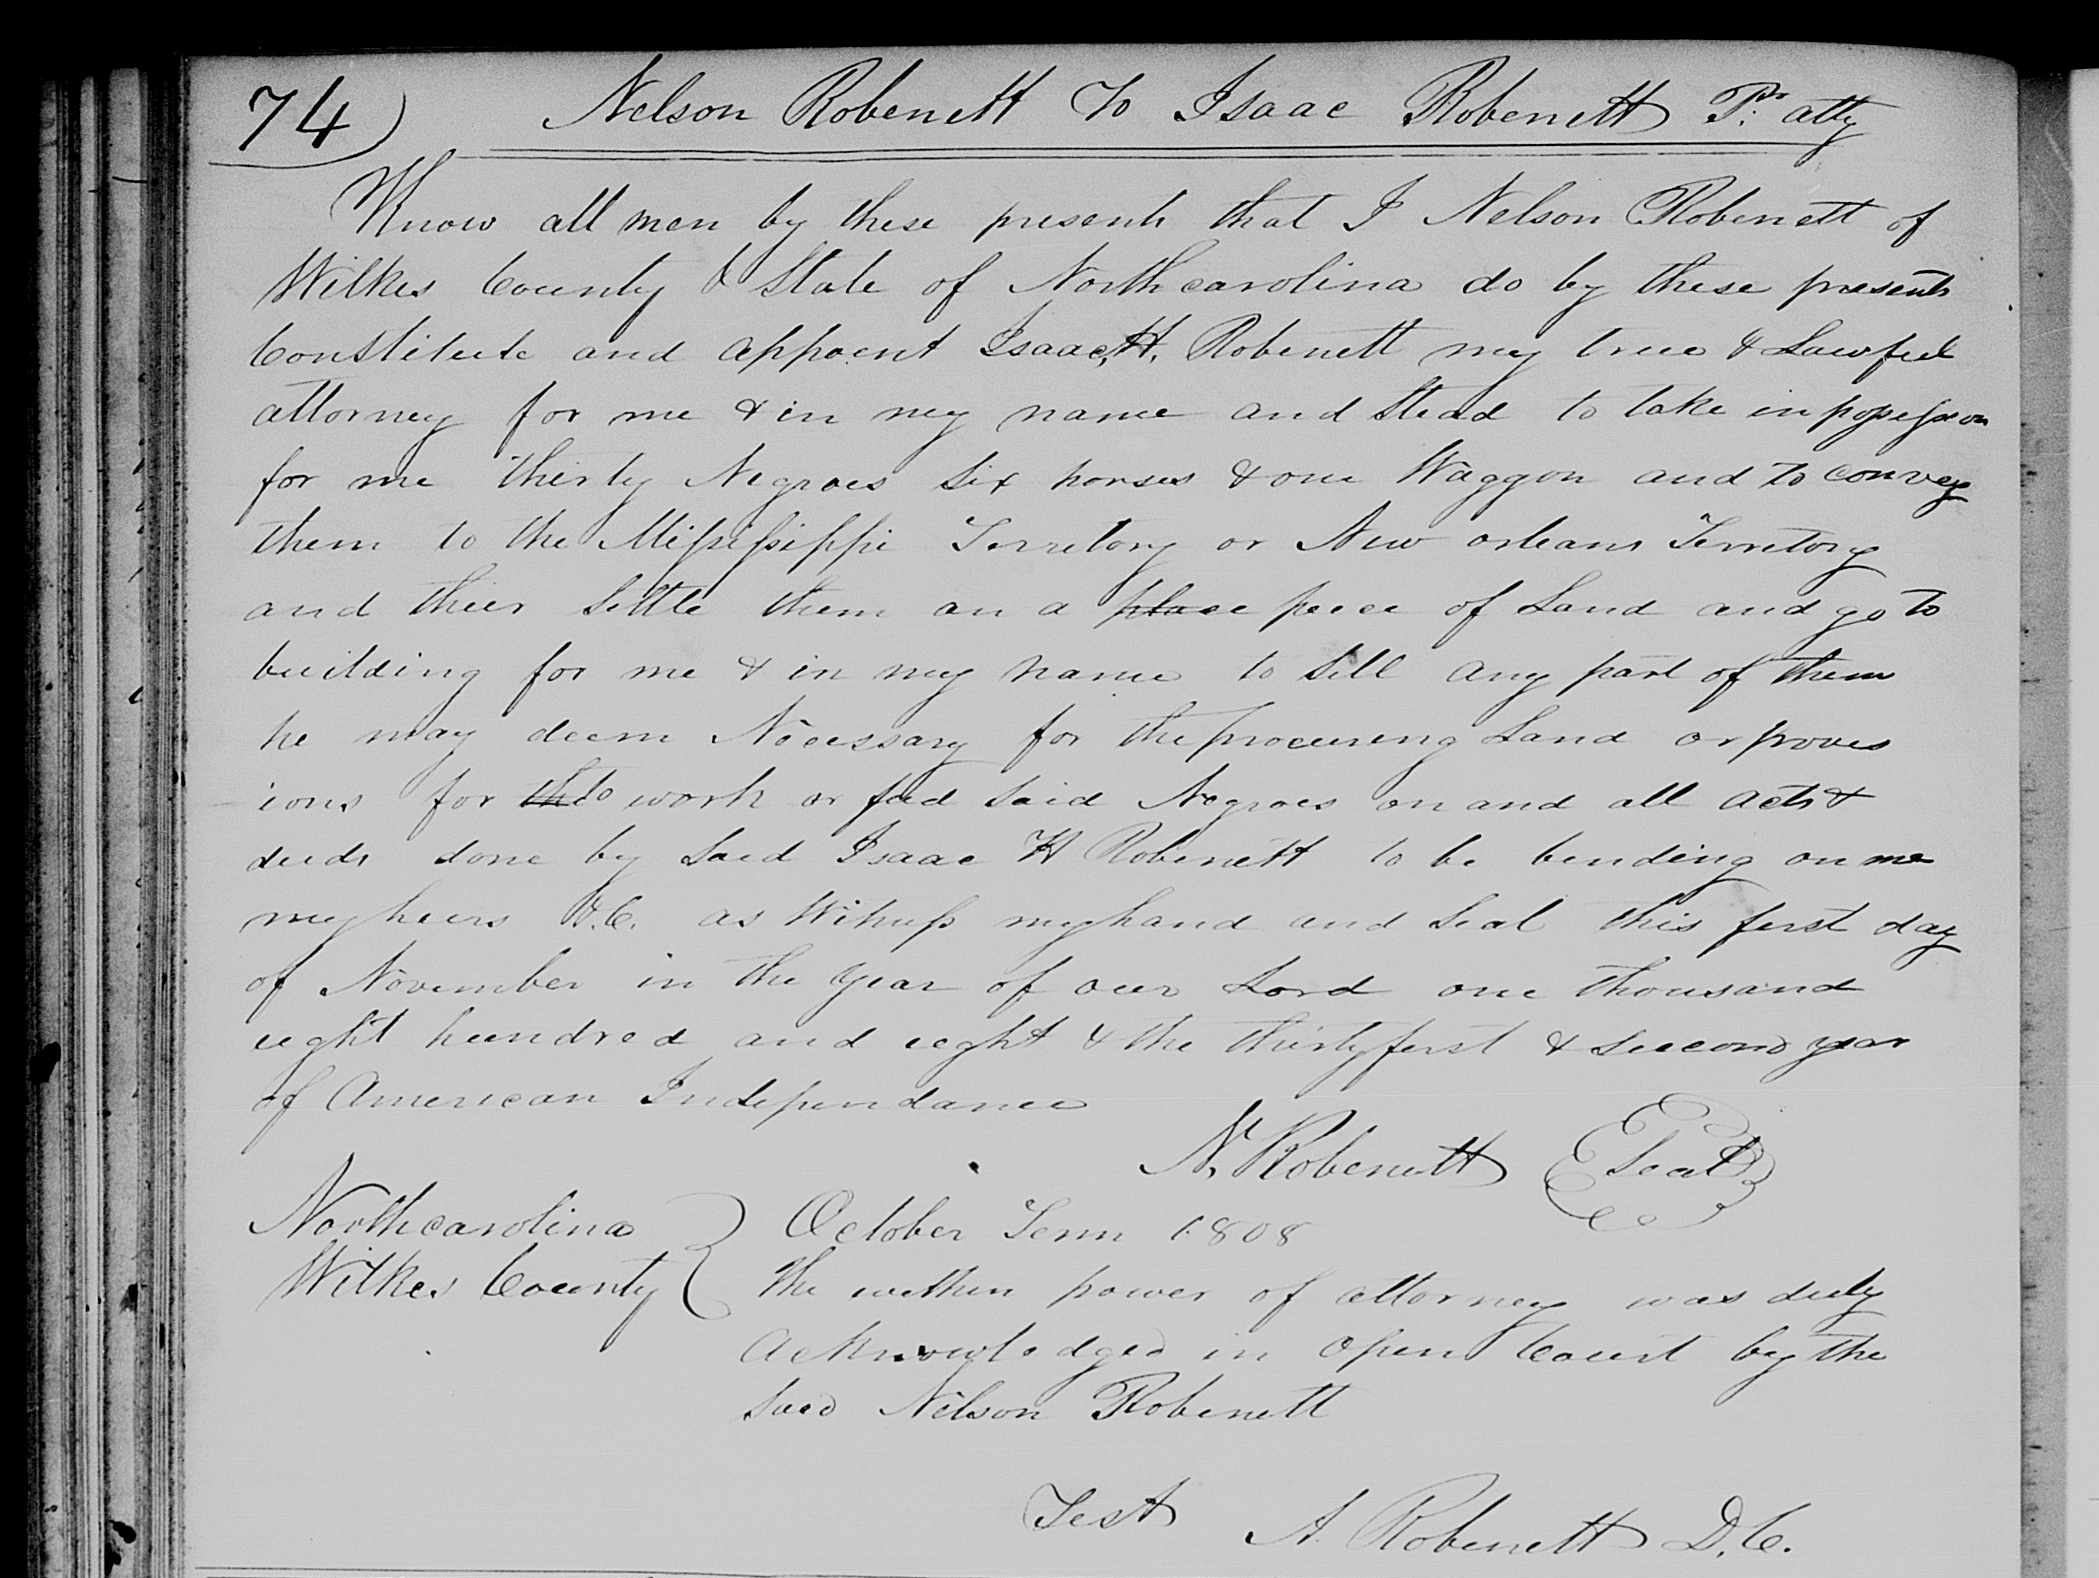 74) Nelson Robenett To Isaac Robenett Pr. atty
Know all men by these presents that I Nelson Robenett of
Wilkes County & State of Northcarolina do by these presents
Constitute and appoint Isaac, H. Robenett my true & Lawful
attorney for me & in my name and Stead to take in possession
for me thirty Negroes Six horses & one Waggon and to convey
them to the Missisippi Territory or New orleans Territory
and their Settle them on a place peice of Land and go to
building for me & in my name to Sell any part of them
he may deem Necessary for the procureing Land or provis
ions for the to work or feed Said Negroes on and all acts &
deeds done by Said Isaac H Robenett to be bending on me
my heirs &.C. as Witness my hand and Seal this first day
of November in the year of our Lord one thousand
eight hundred and eight & the thirtyfirst & Second year
of American Independance
N. Robenett Seal
Northcarolina October Term 1808
Wilkes County The within power of attorney was duly
acknowledged in open Court by the
Said Nelson Robenett
Test A. Robenett D.C.